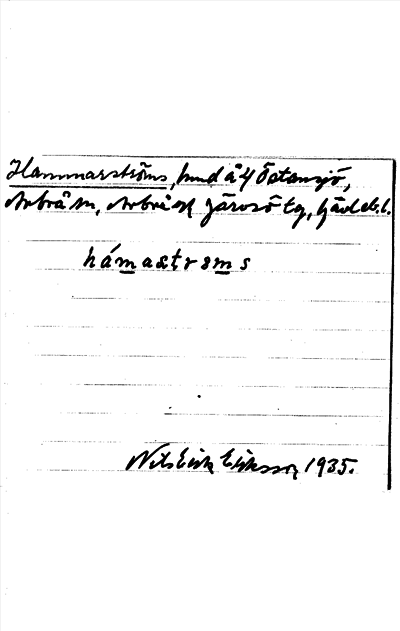 Hammarströms, hmd å 4 Östansjö,
Arbrå sn, Arbrå och Järvsö tg, Gävleb. l.
hámastrɵms
Nils Erik Eriksson 1935.